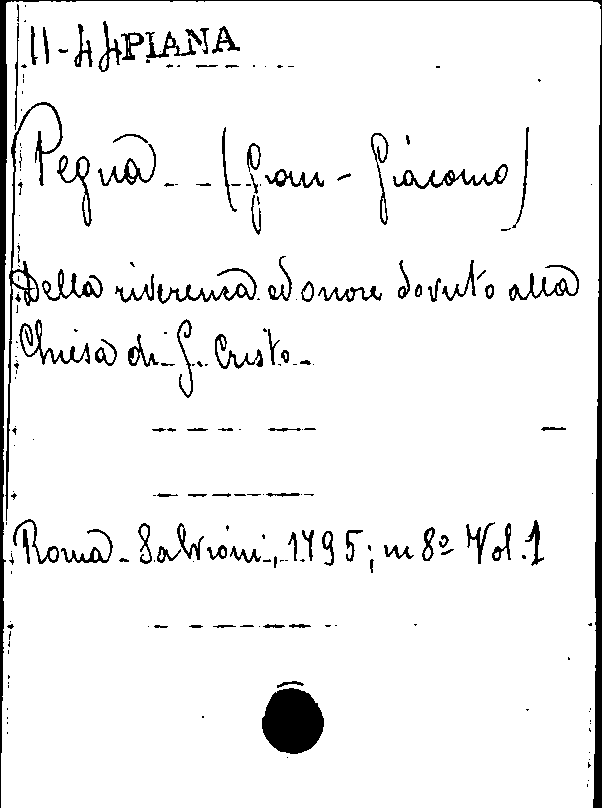 11-44 PIANA
Pegna (Gian-Giacomo)
Della riverenza ed onore dovuto alla
Chiesa di G. Cristo.
Roma - Salvioni, 1795; in 8º Vol. 1